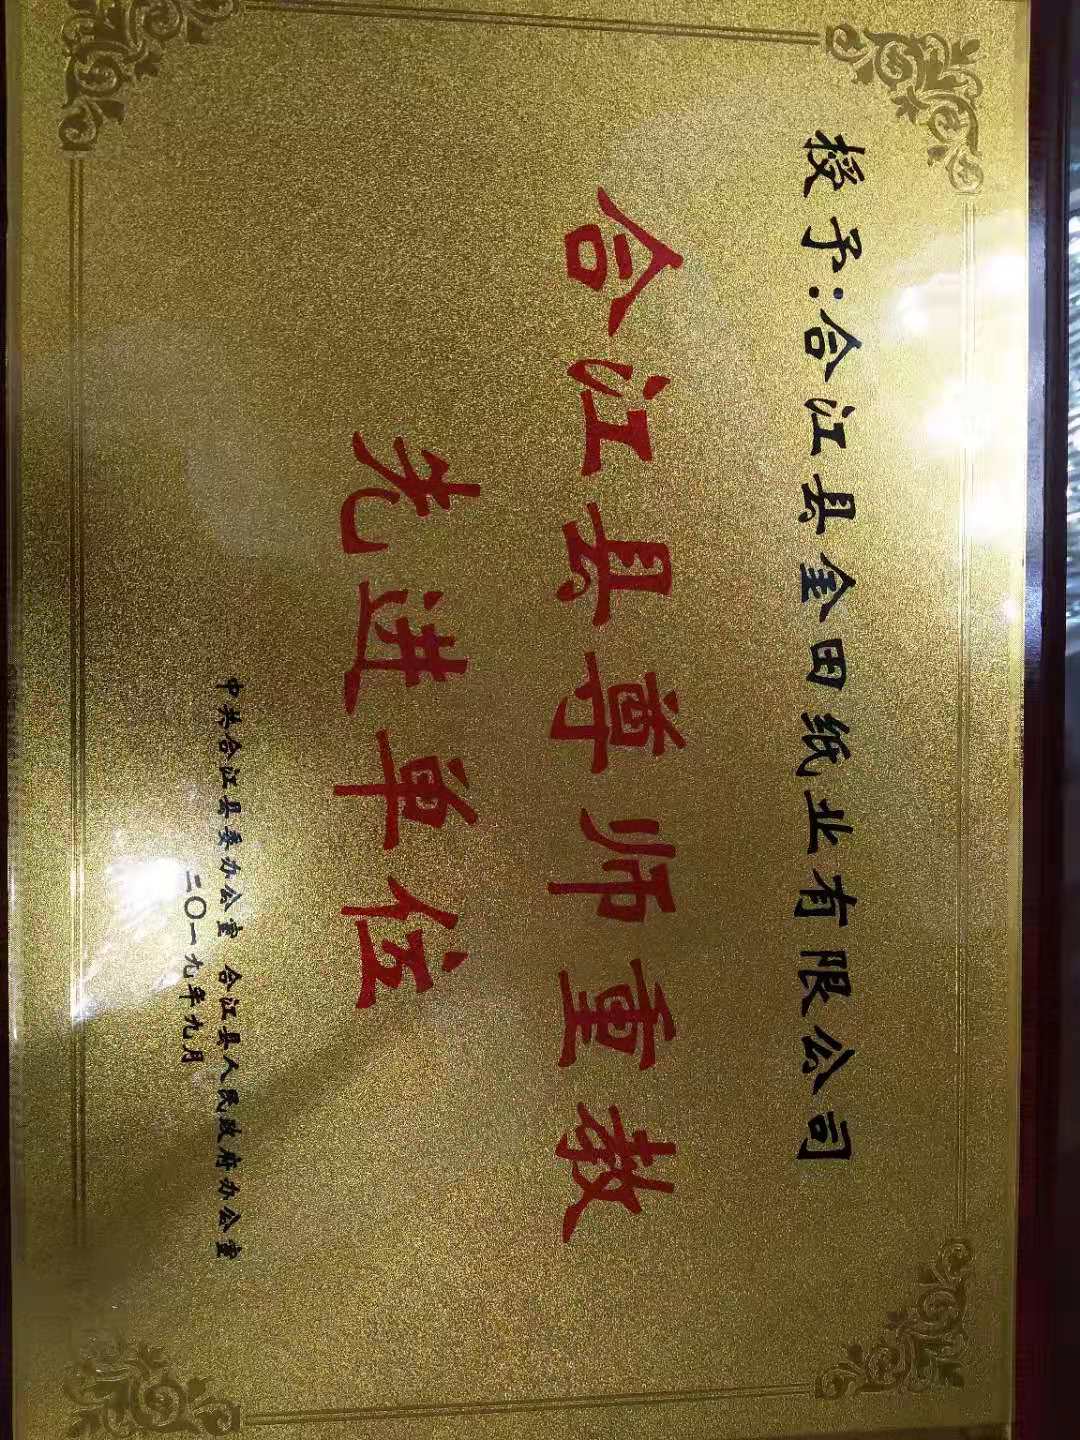 授予：合江县金田纸业有限公司
合江县尊师重教
先进单位
中共合江县委办公室 合江县人民政府办公室
二〇一九年九月